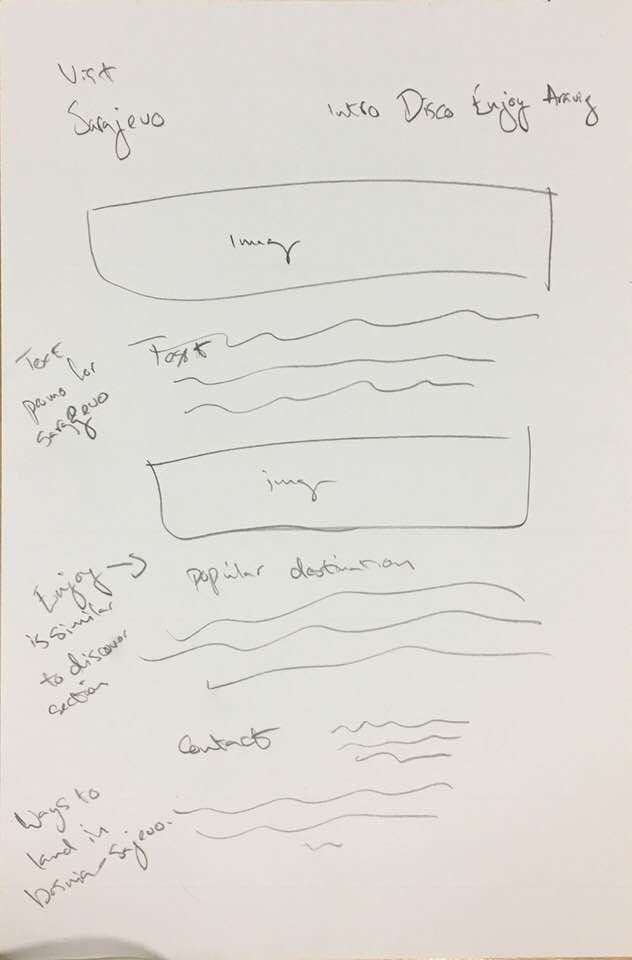 Visit
Sarajevo
Intro Disco Enjoy
Imag
Text
Text
promo for
Sarajevo
img
Enjoy →
is similar
to discover
section
popular destination
Contact
Ways to
land in
bosnia - Sajevo.